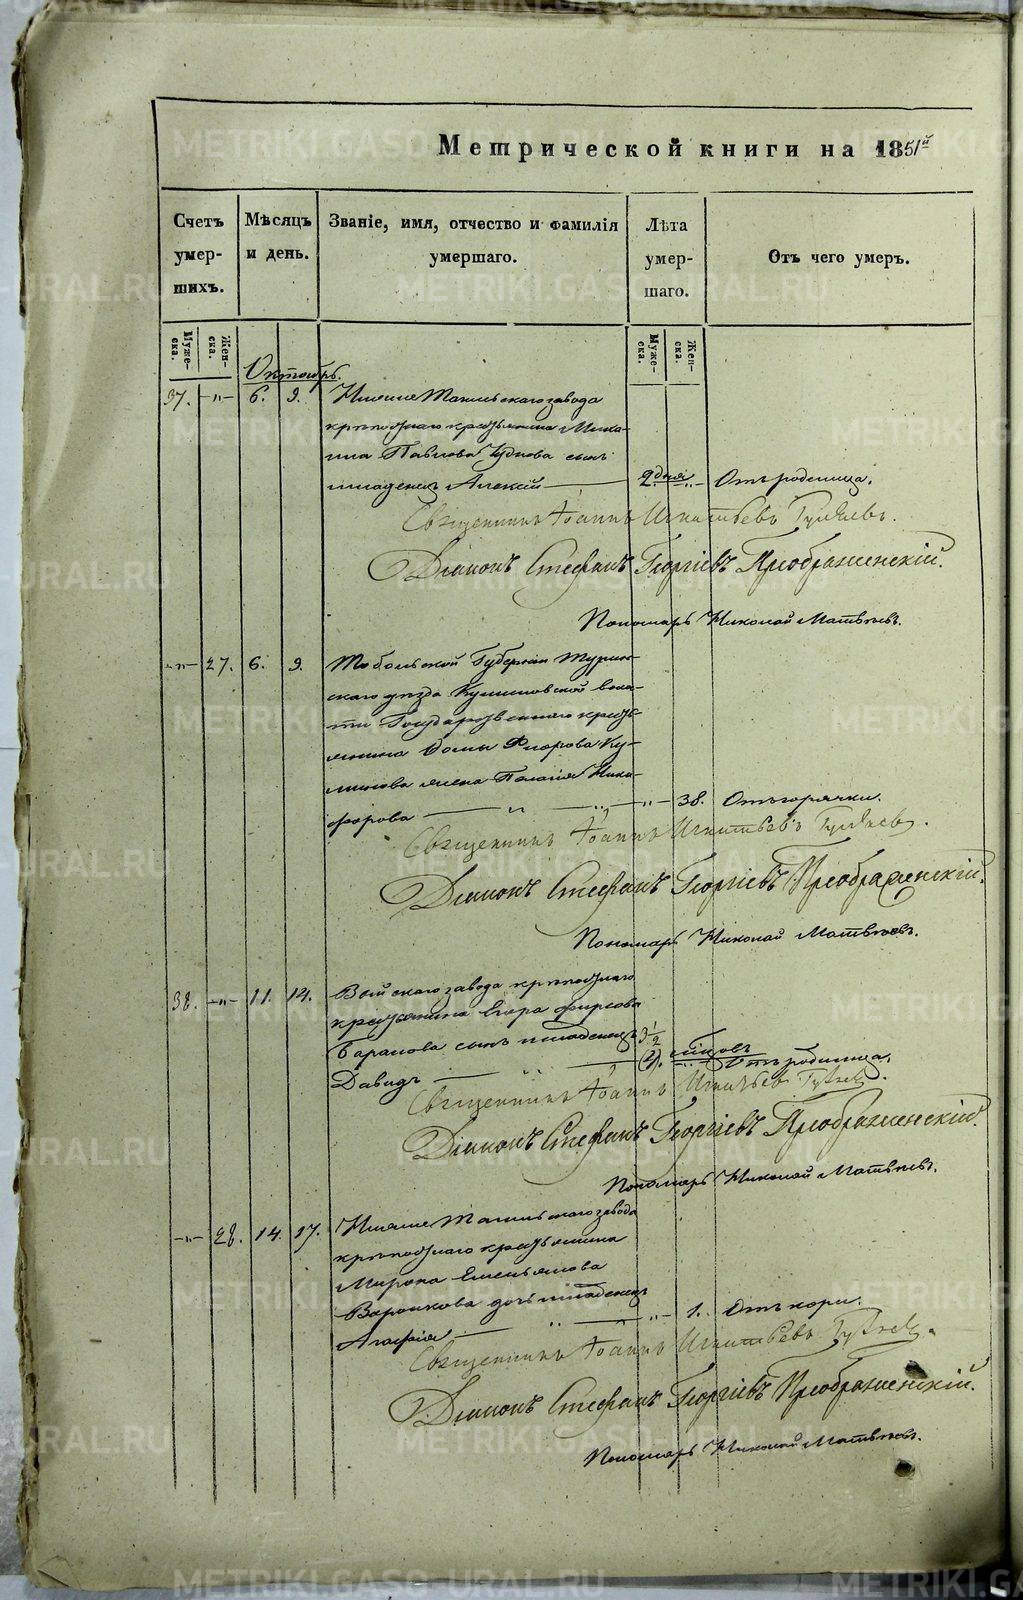 Метрической книги на 1851й
Счетъ умер-шихъ.
Мѣсяцъ и день.
Званіе, имя, отчество и фамилія умершаго.
Лѣта умер-шаго.
Отъ чего умеръ.
Муже-ска.
Жен-ска.
Муже-ска.
Жен-ска.
Октябрь.
37. -"- 6. 9. Нижне Тагильскаго завода
крѣпостнаго крестьянина Миха-
ила Павлова сынъ
младенецъ Алексій 2 дня Отъ родимца.
Священникъ Іоаннъ Игнатьевъ
Діаконъ Стефанъ Георгіевъ Преображенскій.
Пономарь Николай Матвѣевъ.
-"- 27. 6. 9. Тобольской Губерніи Турин-
скаго уѣзда воло-
сти Государственнаго кресть-
янина Ѳомы Ку-
жена Пелагія Ники-
форова -"- 38. Отъ горячки.
Священникъ Іоаннъ Игнатьевъ
Діаконъ Стефанъ Георгіевъ Преображенскій.
Пономарь Николай Матвѣевъ.
38. -"- 11. 14. Выйскаго завода крѣпостнаго
крестьянина Егора Фирсова
Баранова сынъ младенецъ 3 1/2
Давидъ Отъ родимца.
Священникъ Іоаннъ Игнатьевъ
Діаконъ Стефанъ Георгіевъ Преображенскій.
Пономарь Николай Матвѣевъ.
-"- 28. 14. 17. Нижне Тагильскаго завода
крѣпостнаго крестьянина
Мирона Емельянова
дочь младенецъ
Агафія. -"- 1. Отъ кори.
Священникъ Іоаннъ Игнатьевъ
Діаконъ Стефанъ Георгіевъ Преображенскій.
Пономарь Николай Матвѣевъ.
METRIKI.GASO-URAL.RU